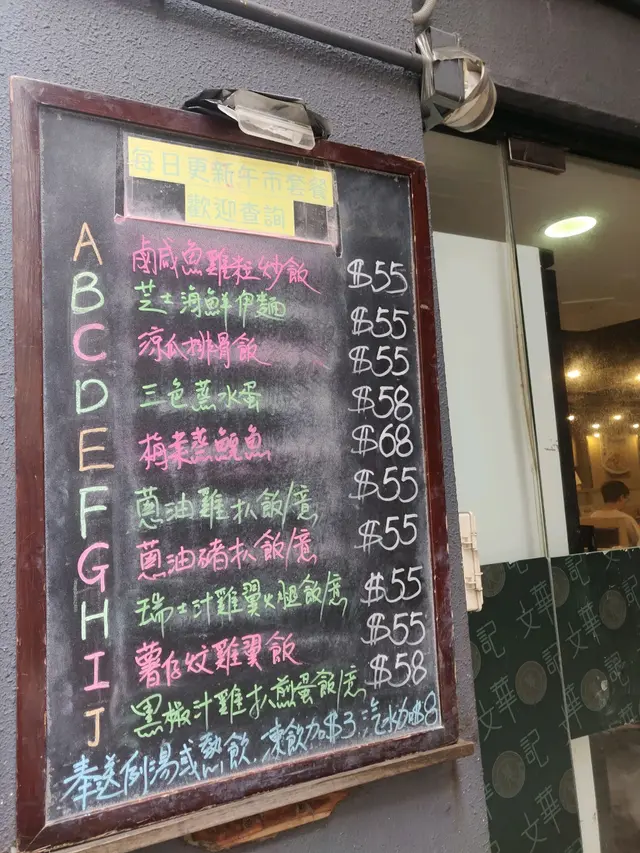 每日更新午市套餐
歡迎查詢
A 鹵咸魚雞粒炒飯 $55
B 芝士海鮮伊麵 $55
C 涼瓜排骨飯 $55
D 三色蒸水蛋 $58
E 梅菜蒸鯇魚 $68
F 蔥油雞扒飯/意 $55
G 蔥油豬扒飯/意 $55
H 瑞士汁雞翼火腿飯/意 $55
I 薯仔炆雞翼飯 $55
J 黑椒汁雞扒煎蛋飯/意 $58
奉送例湯或熱飲 凍飲加$3 汽水加$8
文華記